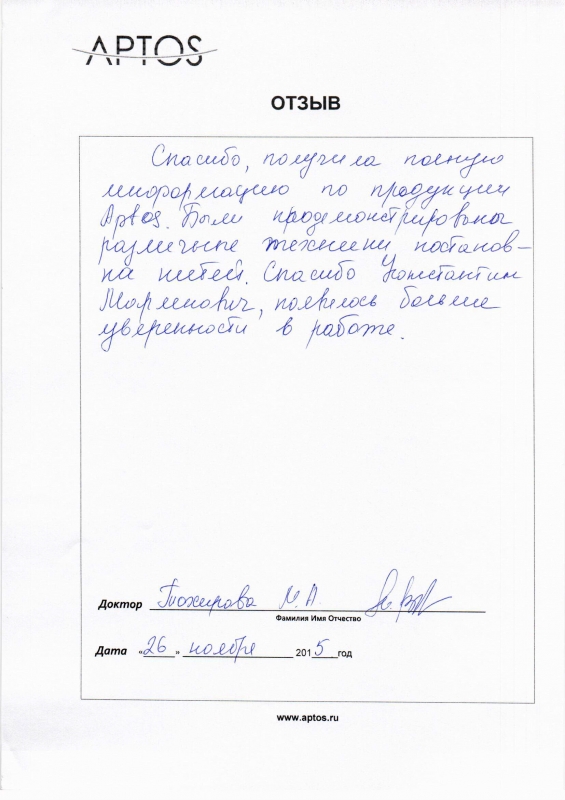 APTOS
ОТЗЫВ
Спасибо, получила полную
информацию по продукции
Aptos. Были продемонстрированы
различные техники постанов-
ки нитей. Спасибо Константин
Марленович, появилось больше
уверенности в работе.
Доктор Тохирова М.А.
Фамилия Имя Отчество
Дата «26» ноября 2015 год
www.aptos.ru